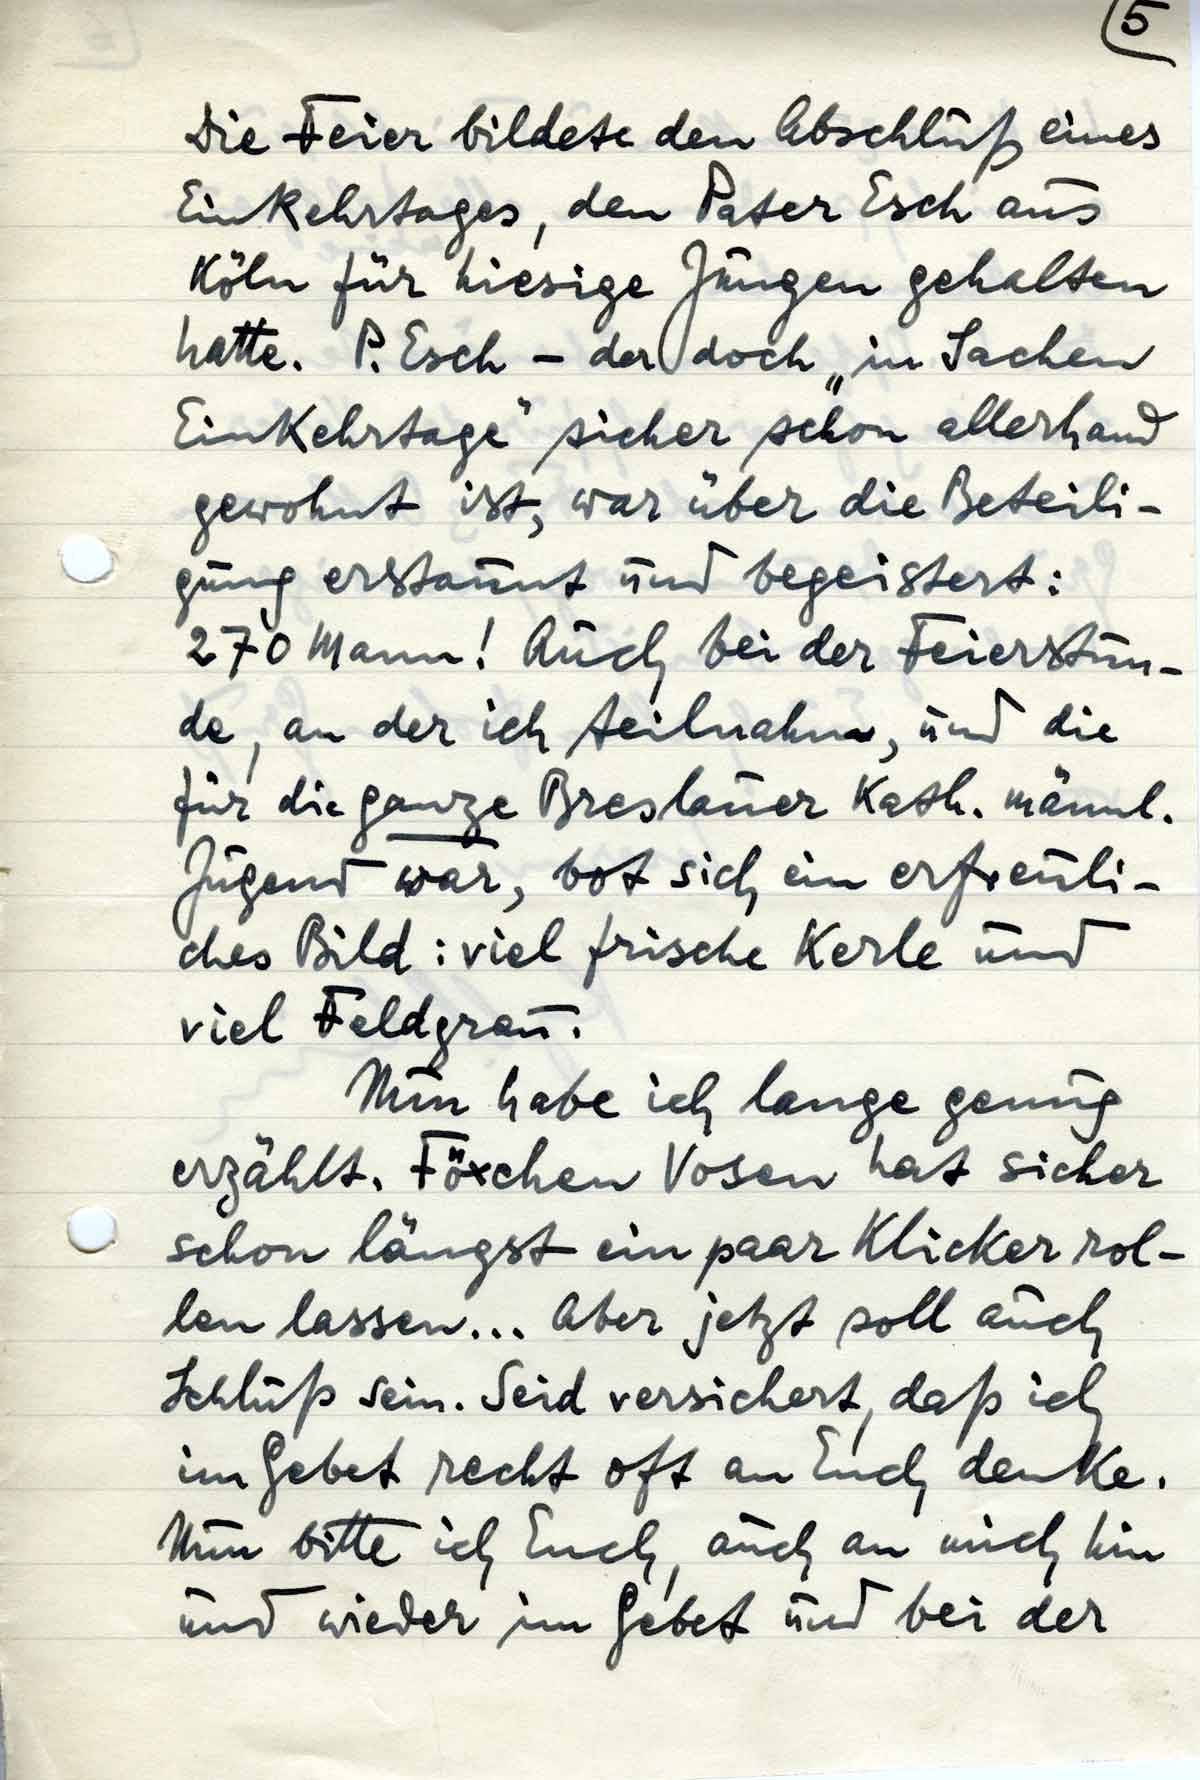 5
Die Feier bildete den Abschluß eines
Einkehrtages, den Pater Esch aus
Köln für hiesige Jungen gehalten
hatte. P. Esch – der doch „in Sachen
Einkehrtage" sicher schon allerhand
gewohnt ist, war über die Beteili-
gung erstaunt und begeistert:
270 Mann! Auch bei der Feierstun-
de, an der ich teilnahm, und die
für die ganze Breslauer Kath. männl.
Jugend war, bot sich ein erfreuli-
ches Bild: viel frische Kerle und
viel Feldgrau.
Nun habe ich lange genug
erzählt. Föxchen Vosen hat sicher
schon längst ein paar Klicker rol-
len lassen... Aber jetzt soll auch
Schluß sein. Seid versichert, daß ich
im Gebet recht oft an Euch denke.
Nun bitte ich Euch, auch an mich hin
und wieder im Gebet und bei der